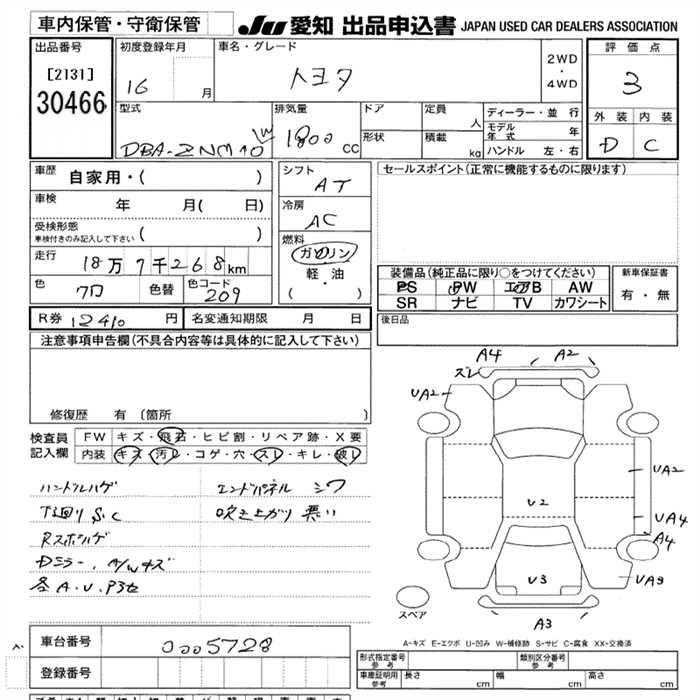 車内保管・守衛保管
JU 愛知 出品申込書 JAPAN USED CAR DEALERS ASSOCIATION
出品番号
[2131]
30466
初度登録年月
16 月
車名・グレード
トヨタ
2WD
・
4WD
評価点
3
外装 内装
D C
型式
DBA-ZNM10W
排気量
1800 cc
ドア
形状
定員 人
積載 kg
ディーラー・並行
モデル年式 年
ハンドル 左・右
車歴
自家用・( )
車検 年 月( 日)
受検形態
車検付きのみ記入して下さい ( )
走行 18万7千268km
色 クロ 色替 色コード 209
シフト
AT
冷房
AC
燃料
ガソリン
軽・油
( ・ )
セールスポイント(正常に機能するものに限ります)
装備品(純正品に限り○をつけてください)
PS PW エアB AW
SR ナビ TV カワシート
新車保証書
有・無
後日品
R券 12410 円 名変通知期限 月 日
注意事項申告欄(不具合内容等は具体的に記入して下さい)
修復歴 有(箇所 )
検査員記入欄
FW キズ・飛石・ヒビ割・リペア跡・X要
内装 キズ・汚レ・コゲ・穴・スレ・キレ・破レ
ハンドルハゲ
下回りS.C
Rスポハゲ
Dミラー、A/Wキズ
各A.U.P3セ
エンドパネル シワ
吹き上がり 悪い
A4
A2
ズレ
UA2
UA2
U2
UA4
A4
U3
UA3
A3
スペア
A-キズ E-エクボ U-凹み W-補修跡 S-サビ C-腐食 XX-交換済
車台番号 0005728
登録番号
形式指定番号 参考
類別区分番号 参考
車庫証明用 参考
長さ cm 幅 cm 高さ cm